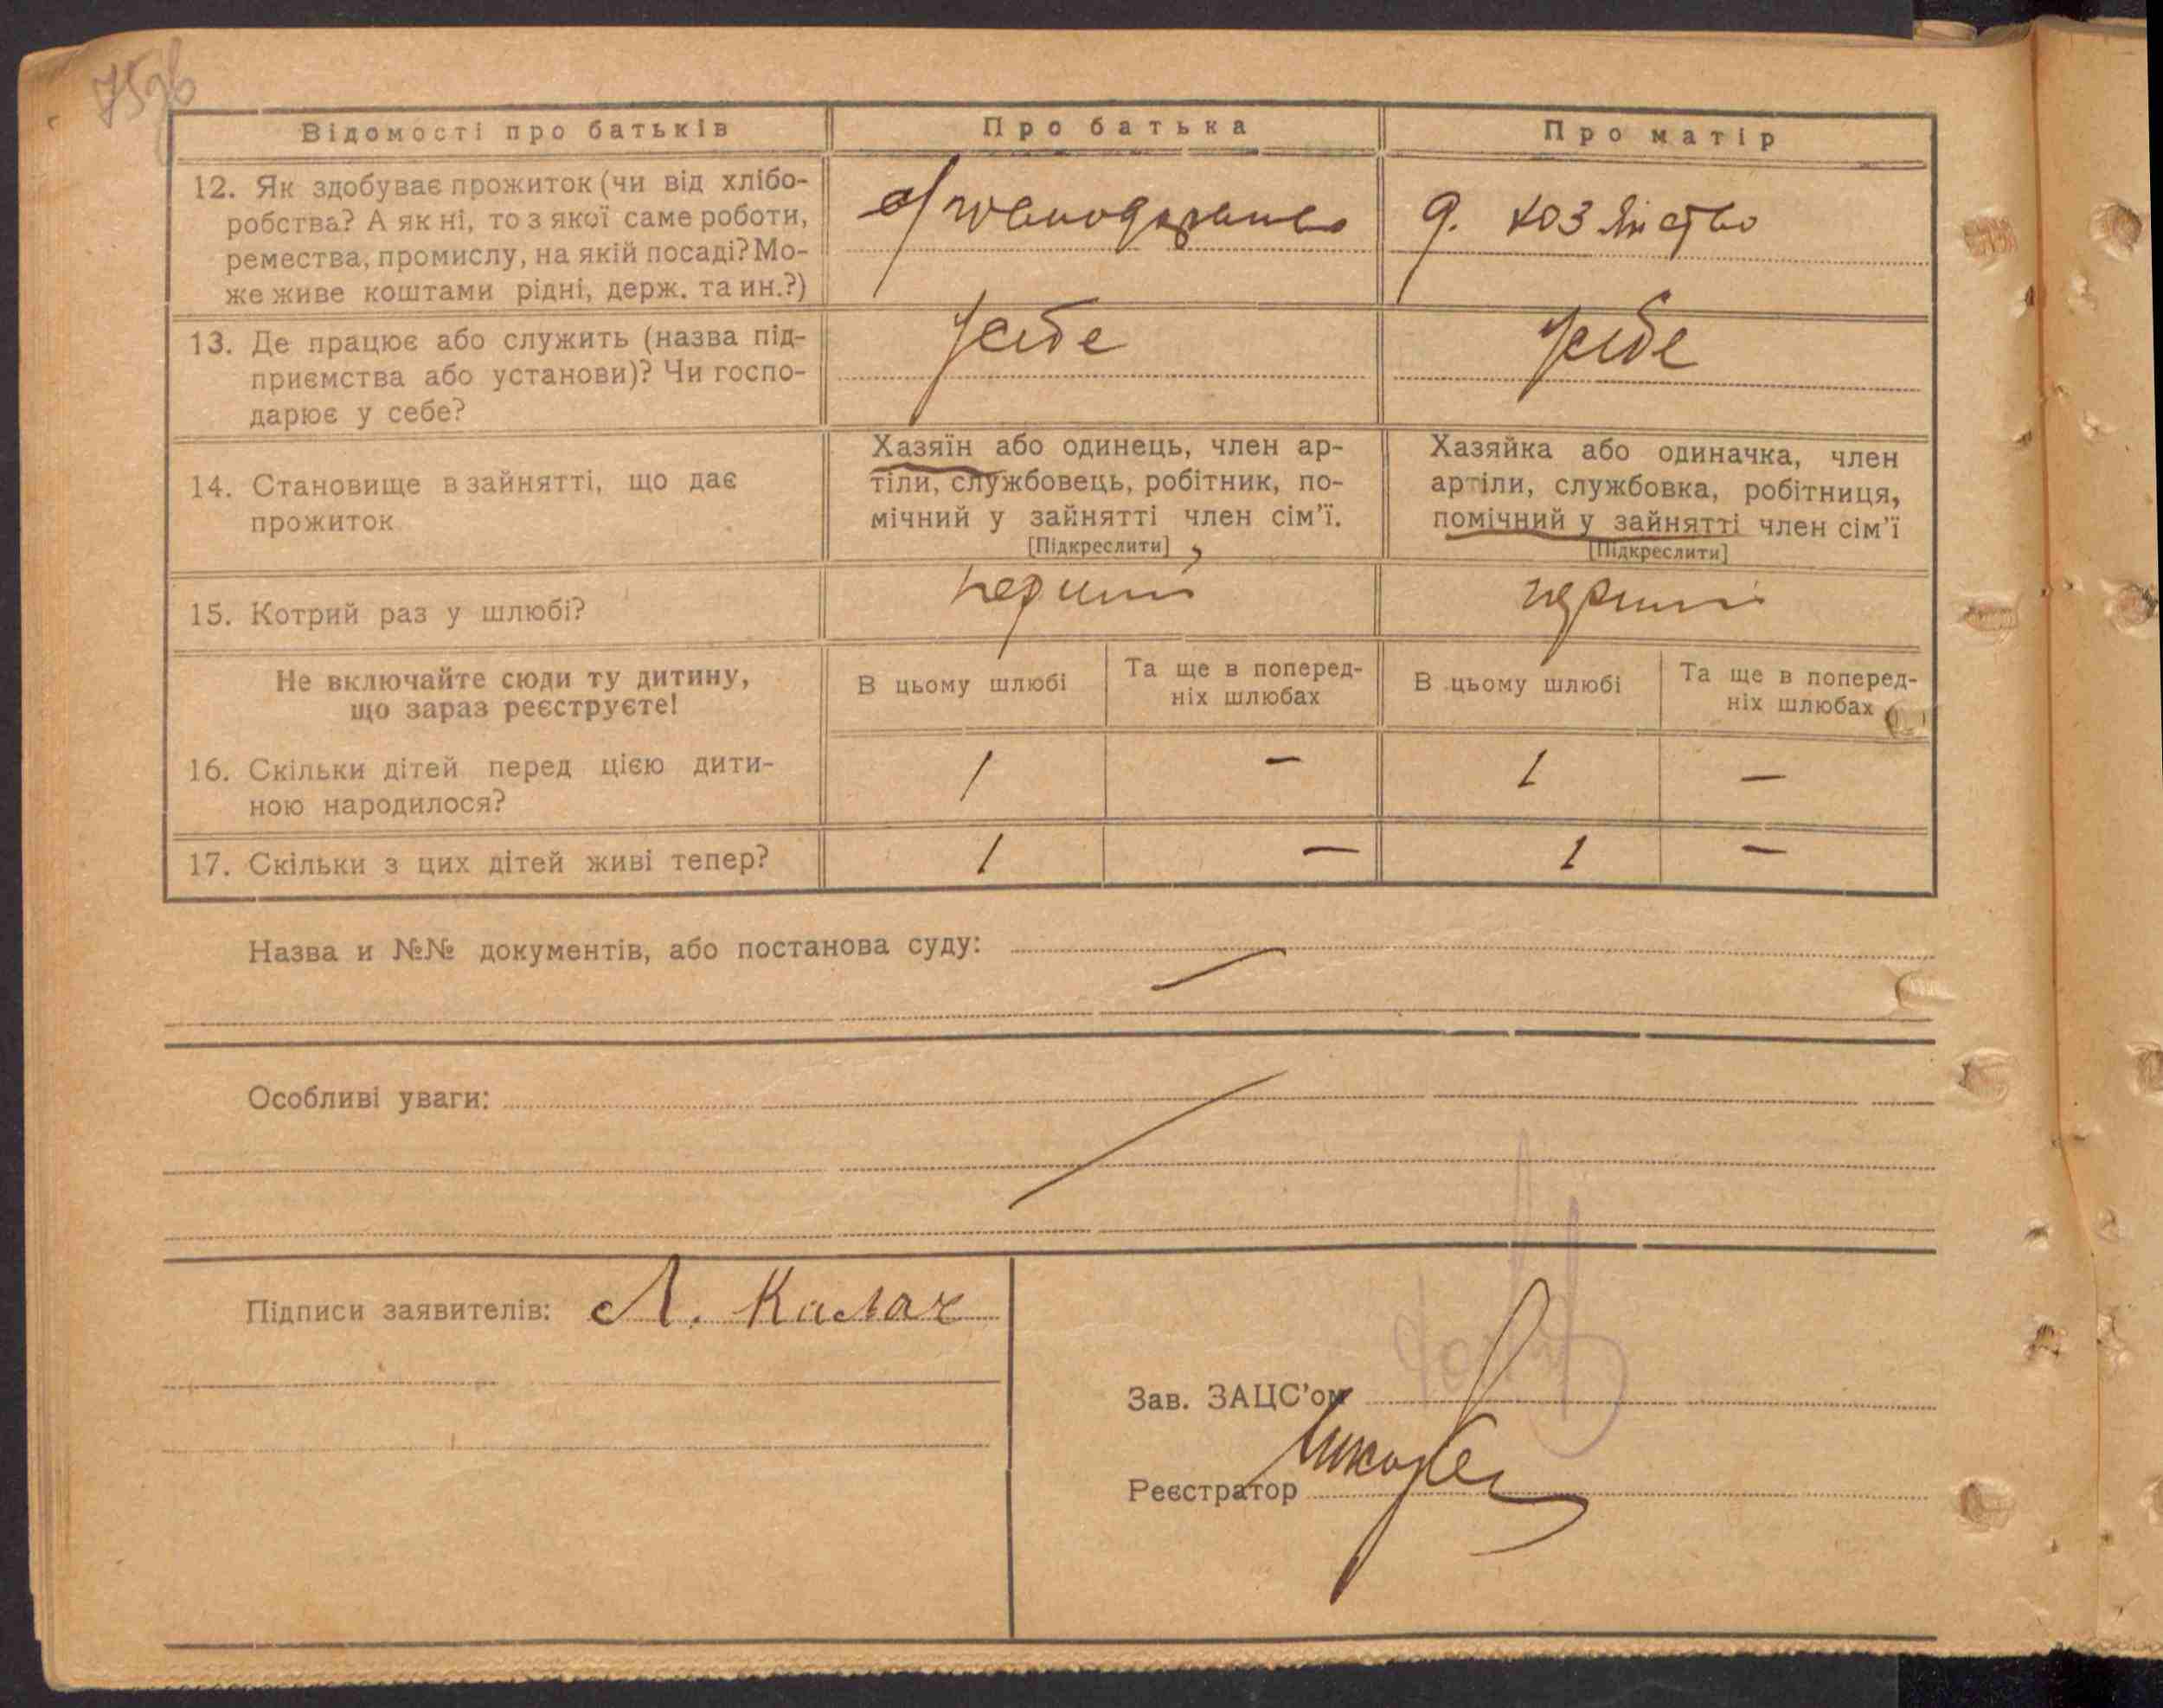 75зв
Відомості про батьків
Про батька
Про матір
12. Як здобуває прожиток (чи від хлібо-
робства? А як ні, то з якої саме роботи,
ремества, промислу, на якій посаді? Мо-
же живе коштами рідні, держ. та ин.?)
с/господарство
д. хозяйство
13. Де працює або служить (назва під-
приємства або установи)? Чи госпо-
дарює у себе?
у себе
у себе
14. Становище в зайнятті, що дає
прожиток
Хазяїн або одинець, член ар-
тіли, службовець, робітник, по-
мічний у зайнятті член сім'ї.
[Підкреслити]
Хазяйка або одиначка, член
артіли, службовка, робітниця,
помічний у зайнятті член сім'ї
[Підкреслити]
15. Котрий раз у шлюбі?
перший
перший
Не включайте сюди ту дитину,
що зараз реєструєте!
В цьому шлюбі
Та ще в поперед-
ніх шлюбах
В цьому шлюбі
Та ще в поперед-
ніх шлюбах
16. Скільки дітей перед цією дити-
ною народилося?
1 — 1 —
17. Скільки з цих дітей живі тепер?
1 — 1 —
Назва и №№ документів, або постанова суду: —
Особливі уваги:
Підписи заявителів: Л. Калач
Зав. ЗАЦС'ом
Реєстратор